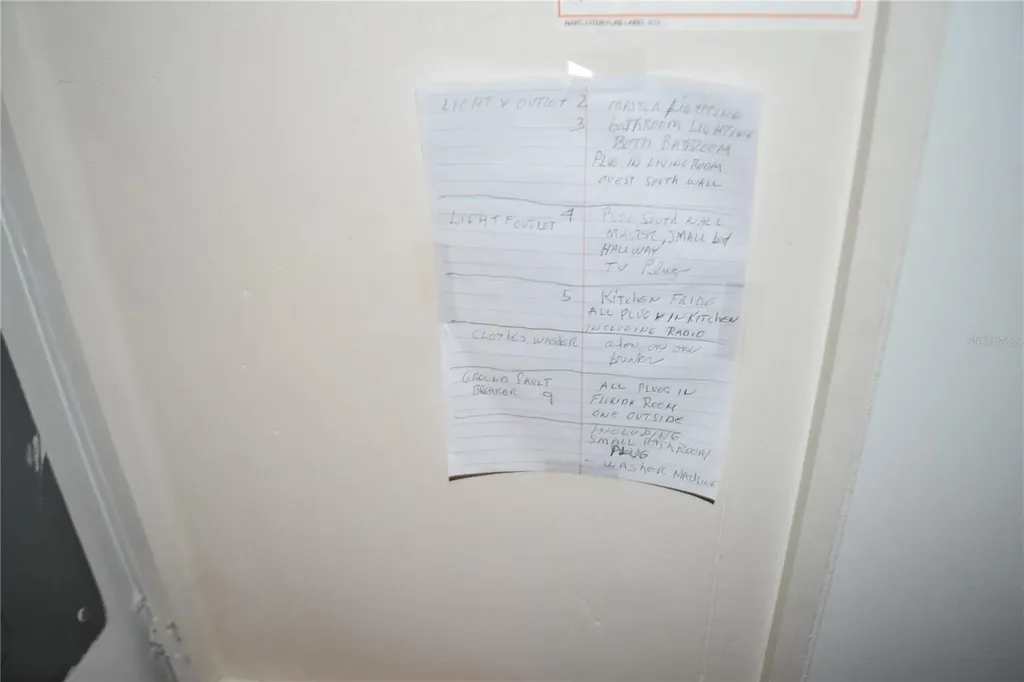 LIGHT & OUTLET 2 MASTER LIGHTING
3 BATHROOM LIGHTING
BOTH BATROOM
PLUG IN LIVING ROOM
SOUTH WALL
LIGHT & OUTLET 4 PLUG SOUTH WALL
MASTER, SMALL
HALLWAY
TV Plug
5 KITCHEN FRIDG
ALL PLUG IN KITCHEN
INCLUDING RADIO
CLOTHES WASHER alone on one
breaker
GROUND FAULT
BREAKER 9
ALL PLUGS IN
FLORIDA ROOM
ONE OUTSIDE
INCLUDING
SMALL BATHROOM
PLUG
- WASHER MACHINE